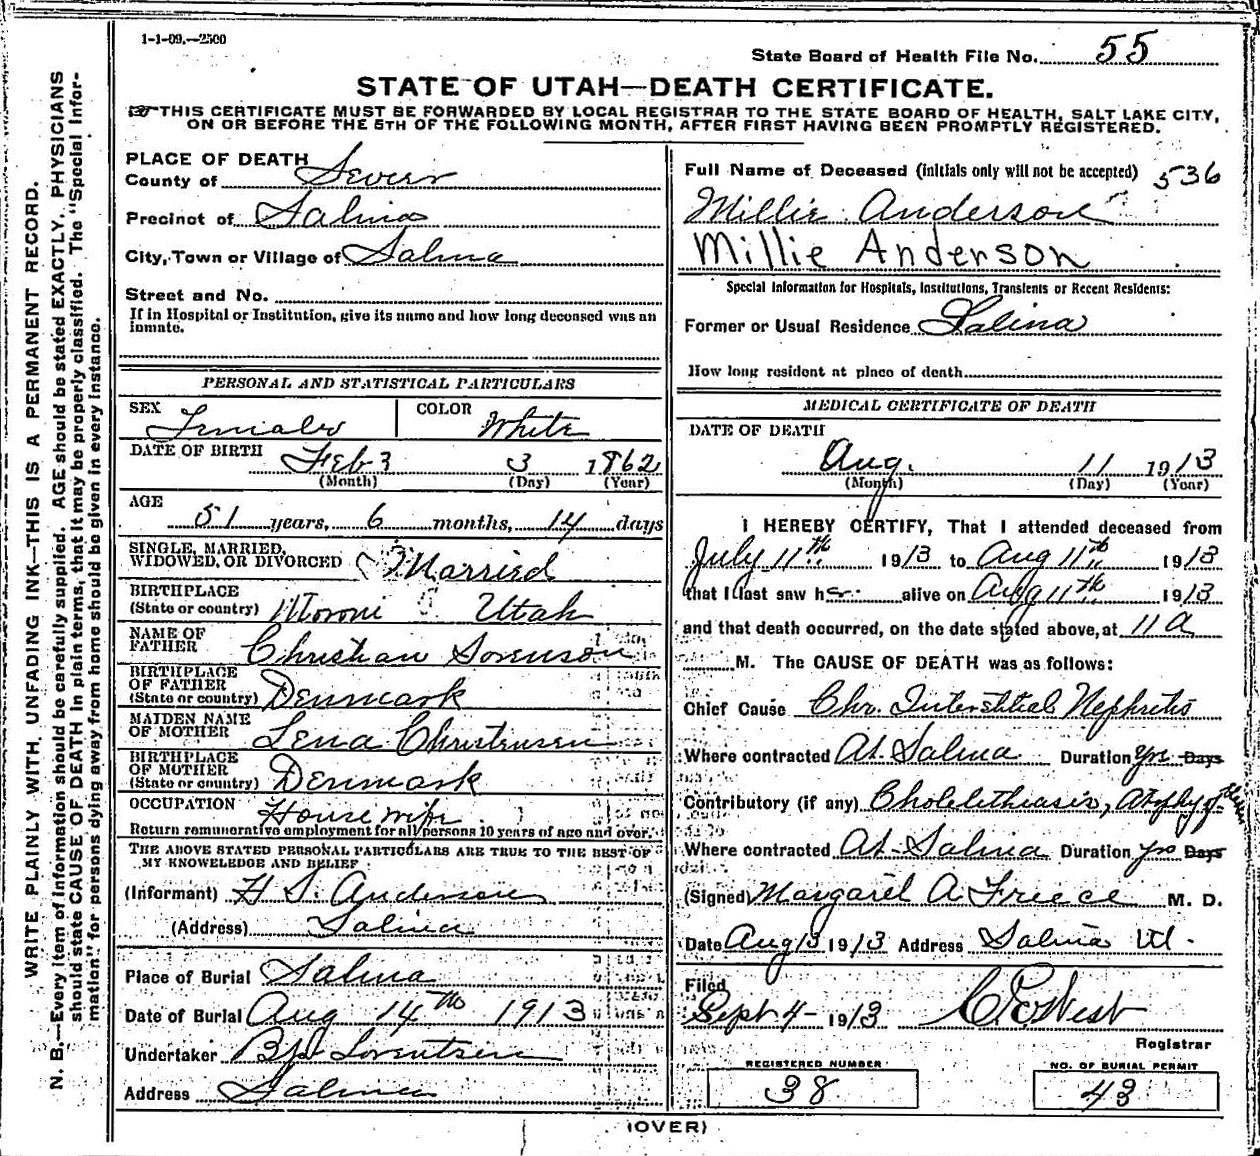 1-1-09.—2500
State Board of Health File No. 55
STATE OF UTAH—DEATH CERTIFICATE.
THIS CERTIFICATE MUST BE FORWARDED BY LOCAL REGISTRAR TO THE STATE BOARD OF HEALTH, SALT LAKE CITY,
ON OR BEFORE THE 5TH OF THE FOLLOWING MONTH, AFTER FIRST HAVING BEEN PROMPTLY REGISTERED.
WRITE PLAINLY WITH UNFADING INK—THIS IS A PERMANENT RECORD.
N. B.—Every item of information should be carefully supplied. AGE should be stated EXACTLY. PHYSICIANS
should state CAUSE OF DEATH in plain terms, that it may be properly classified. The "Special Infor-
mation" for persons dying away from home should be given in every instance.
PLACE OF DEATH
County of Sevier
Precinct of Salina
City, Town or Village of Salina
Street and No.
If in Hospital or Institution, give its name and how long deceased was an
inmate.
PERSONAL AND STATISTICAL PARTICULARS
SEX Female COLOR White
DATE OF BIRTH Feb 3 3 1862
(Month) (Day) (Year)
AGE
51 years, 6 months, 14 days
SINGLE, MARRIED,
WIDOWED, OR DIVORCED Married
BIRTHPLACE
(State or country) Moroni Utah
NAME OF
FATHER Christian Sorenson
BIRTHPLACE
OF FATHER
(State or country) Denmark
MAIDEN NAME
OF MOTHER Lena Christensen
BIRTHPLACE
OF MOTHER
(State or country) Denmark
OCCUPATION House wife
Return remunerative employment for all persons 10 years of age and over.
THE ABOVE STATED PERSONAL PARTICULARS ARE TRUE TO THE BEST OF
MY KNOWLEDGE AND BELIEF
(Informant) H S. Anderson
(Address) Salina
Place of Burial Salina
Date of Burial Aug 14th 1913
Undertaker Lorentsen
Address Salina
Full Name of Deceased (Initials only will not be accepted) 536
Millie Anderson
Millie Anderson
Special Information for Hospitals, Institutions, Transients or Recent Residents:
Former or Usual Residence Salina
How long resident at place of death
MEDICAL CERTIFICATE OF DEATH
DATE OF DEATH
Aug. 11 1913
(Month) (Day) (Year)
I HEREBY CERTIFY, That I attended deceased from
July 11th 1913 to Aug 11th 1913
that I last saw her alive on Aug 11th 1913
and that death occurred, on the date stated above, at 11 A
M. The CAUSE OF DEATH was as follows:
Chief Cause Chr. Interstitial Nephritis
Where contracted At Salina Duration yrs Days
Contributory (if any) Cholelithiasis,
Where contracted At Salina Duration yrs Days
(Signed) Margaret A Freece M. D.
Date Aug 13 1913 Address Salina Ut.
Filed
Sept 4 - 1913 West
Registrar
REGISTERED NUMBER
38
NO. OF BURIAL PERMIT
43
(OVER)